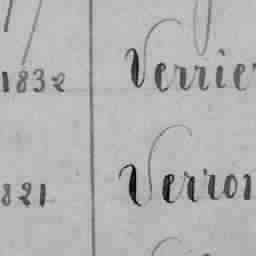 1832 Verrier
821 Verron